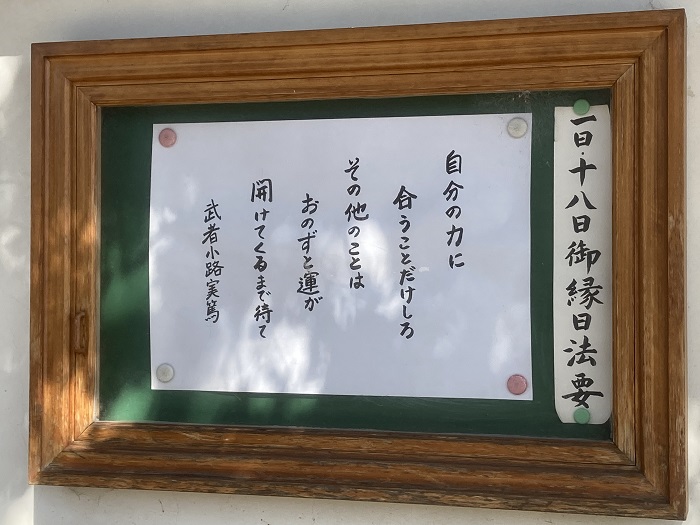 一日・十八日御縁日法要
自分の力に
合うことだけしろ
その他のことは
おのずと運が
開けてくるまで待て
武者小路実篤